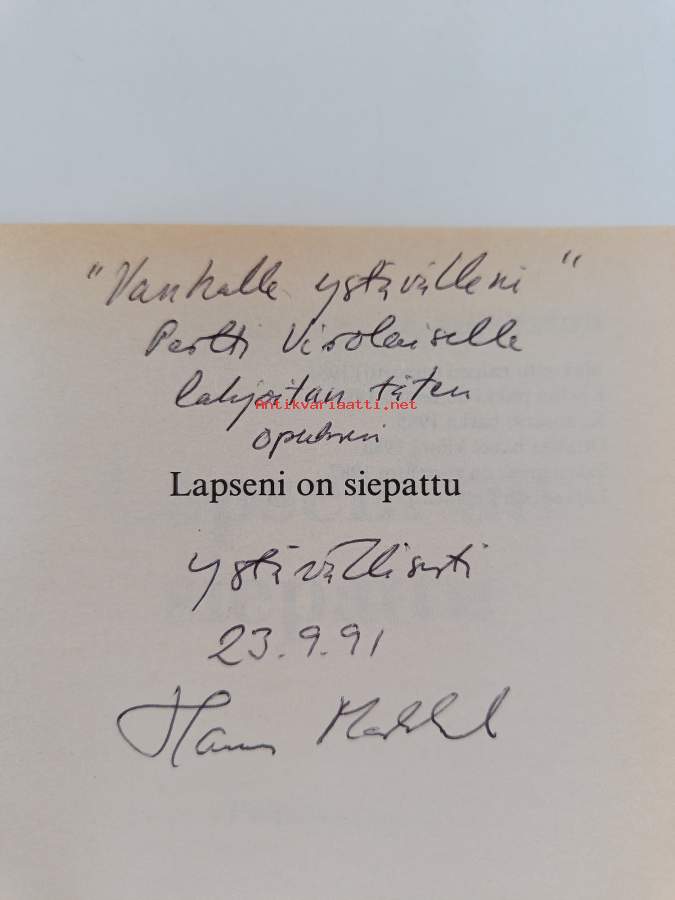 "Vanhalle ystävälleni"
Pertti Virolaiselle
lahjoitan täten
Antikvariaatti.net
opuksen
Lapseni on siepattu
ystävällisesti
23.9.91